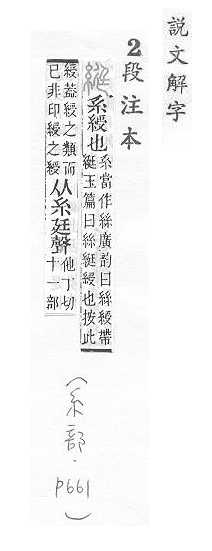 說文解字
2段注本
綎 系綬也 系當作絲廣韵曰絲綬帶
綎玉篇曰絲綎綬也按此
綬葢綬之類而
已非印綬之綬 从糸廷聲 他丁切
十一部
(糸部．p661)